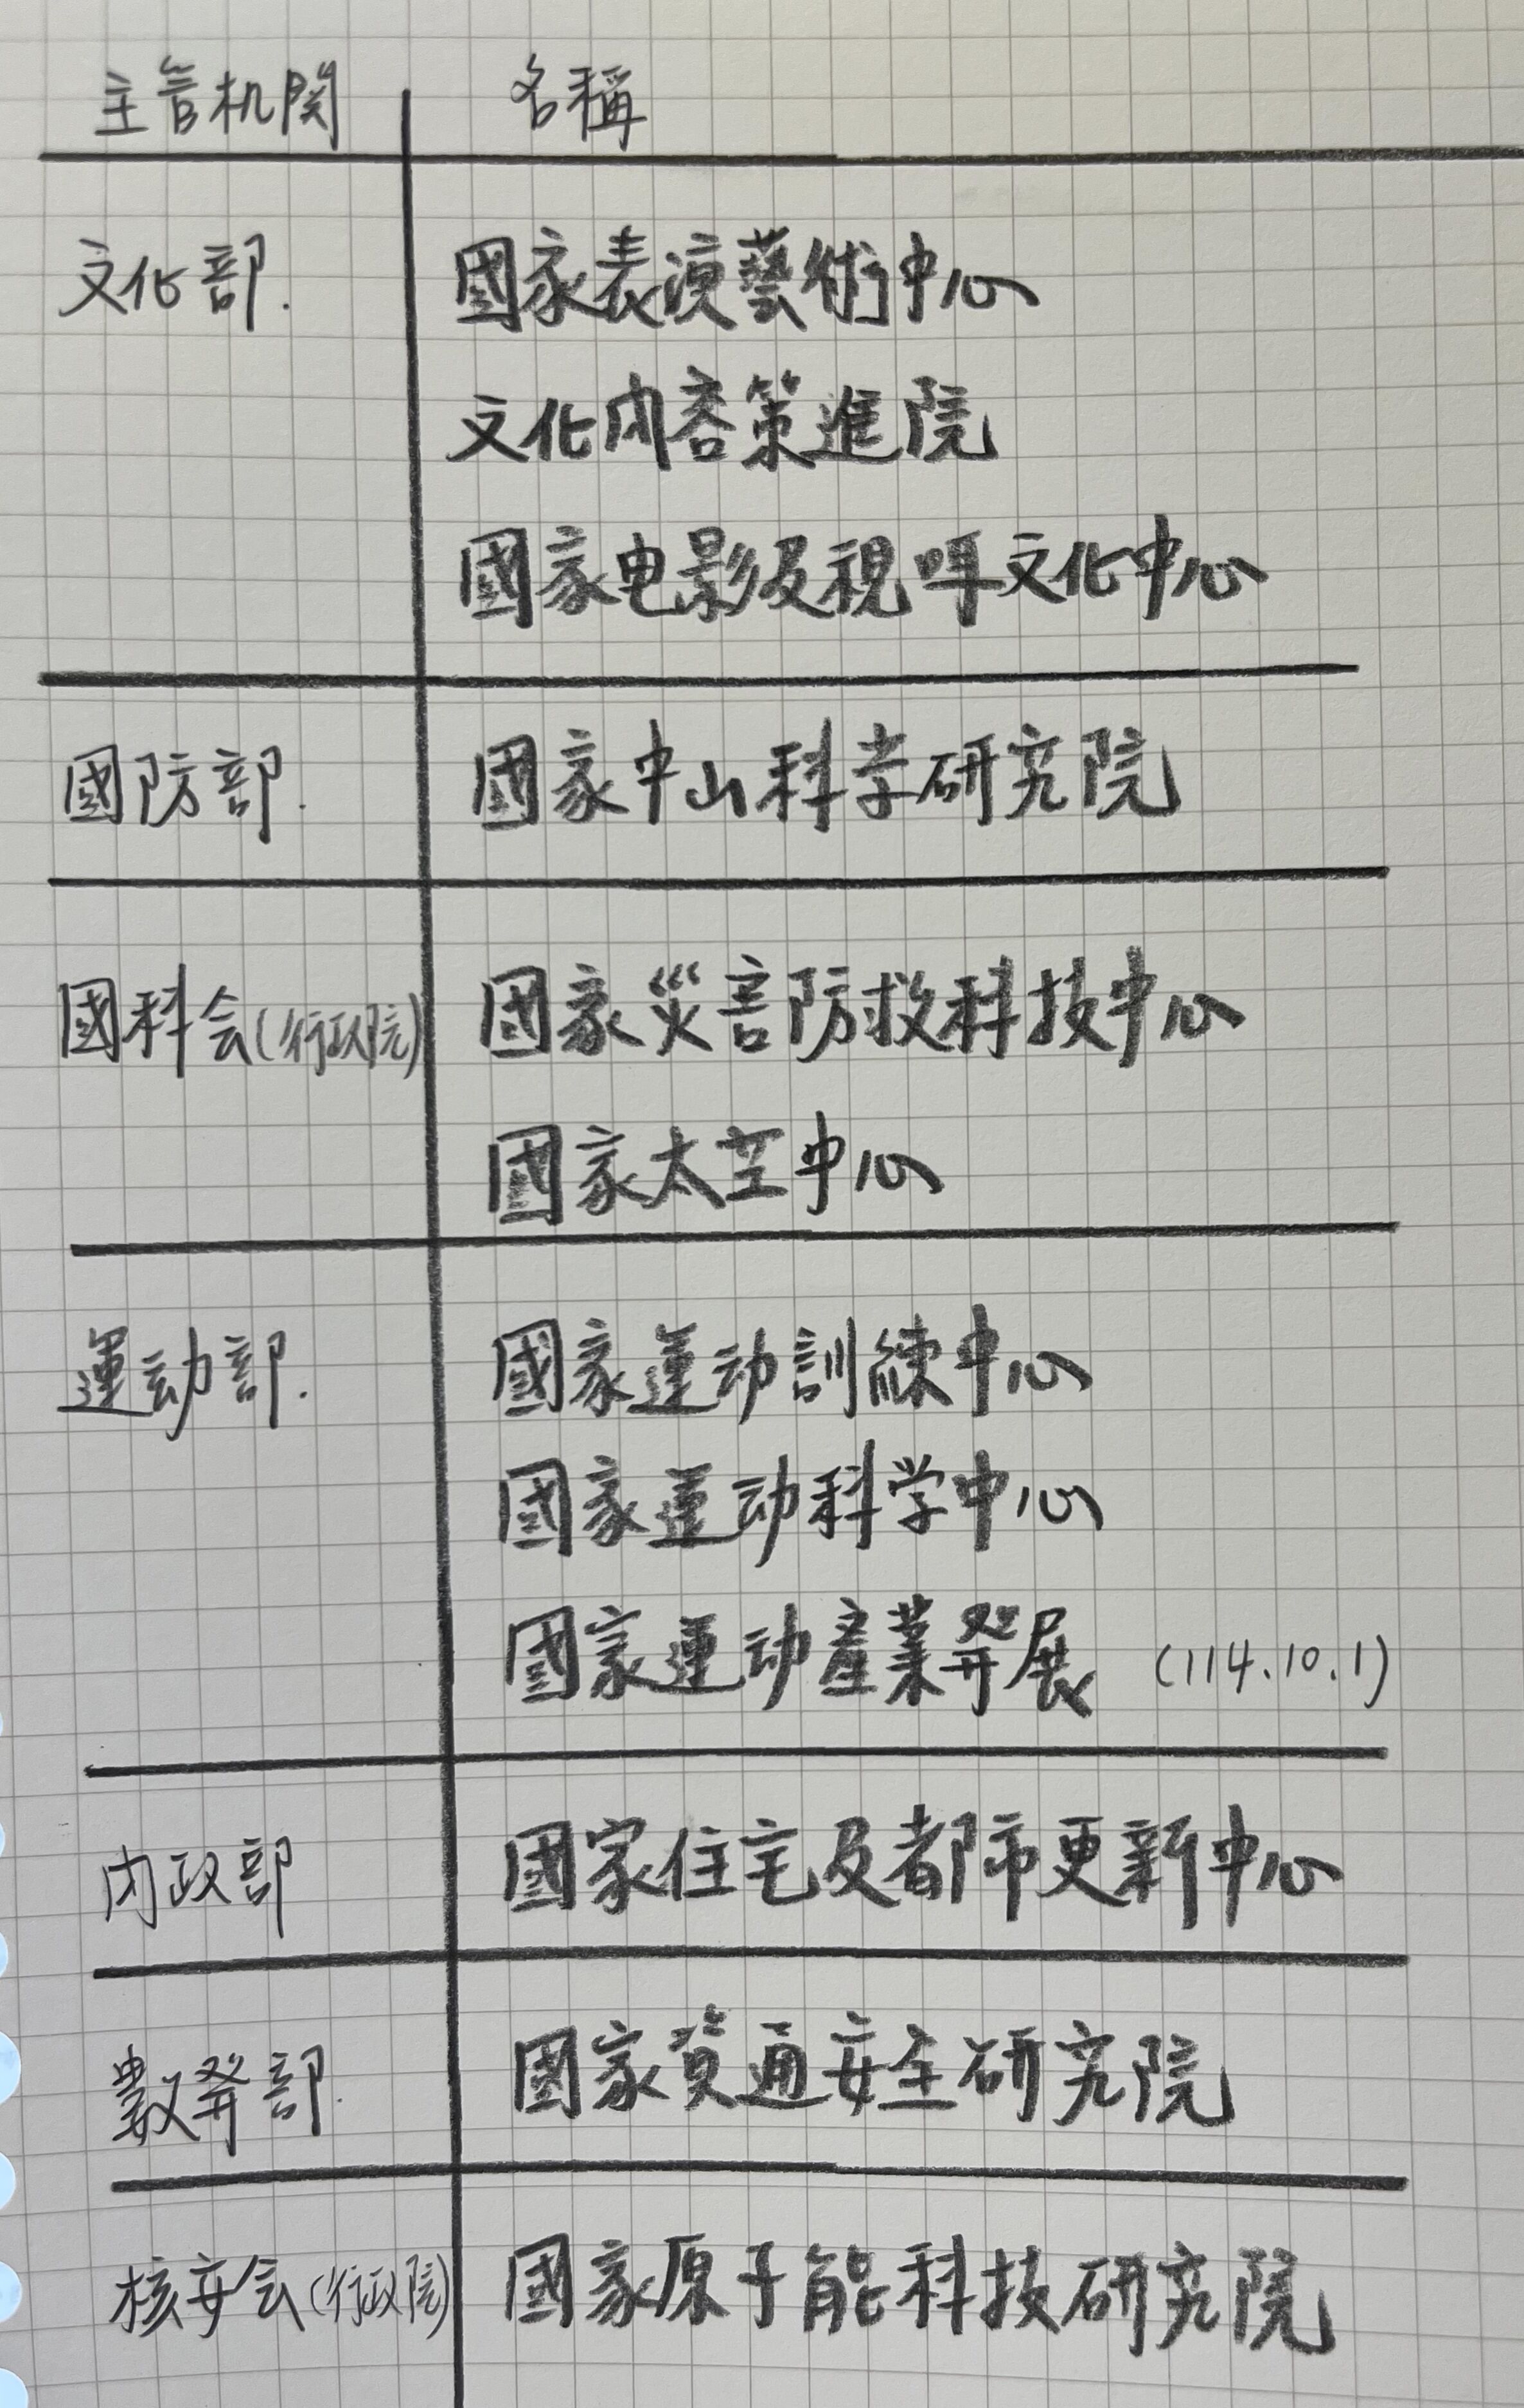 主管机関 名稱
文化部. 國家表演藝術中心
文化内容策進院
國家电影及視听文化中心
國防部. 國家中山科学研究院
國科会(行政院) 國家災害防救科技中心
國家太空中心
運动部. 國家運动訓練中心
國家運动科学中心
國家運动產業発展 (114.10.1)
内政部 國家住宅及都市更新中心
數発部. 國家資通安全研究院
核安会(行政院) 國家原子能科技研究院